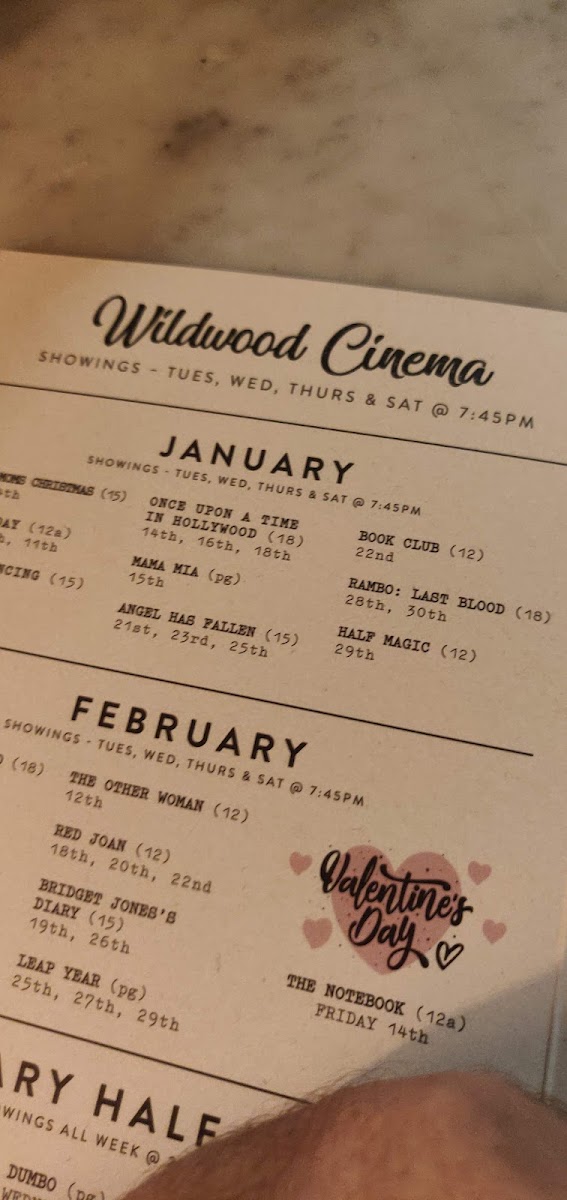 Wildwood Cinema
SHOWINGS - TUES, WED, THURS & SAT @ 7:45PM
JANUARY
SHOWINGS - TUES, WED, THURS & SAT @ 7:45PM
MOMS CHRISTMAS (15)
(12a)
11th
(15)
ONCE UPON A TIME
IN HOLLYWOOD (18)
14th, 16th, 18th
MAMA MIA (pg)
15th
ANGEL HAS FALLEN (15)
21st, 23rd, 25th
BOOK CLUB (12)
22nd
RAMBO: LAST BLOOD (18)
28th, 30th
HALF MAGIC (12)
29th
FEBRUARY
SHOWINGS - TUES, WED, THURS & SAT @ 7:45PM
(18)
THE OTHER WOMAN (12)
12th
RED JOAN (12)
18th, 20th, 22nd
BRIDGET JONES'S
DIARY (15)
19th, 26th
LEAP YEAR (pg)
25th, 27th, 29th
Valentine's
Day
THE NOTEBOOK (12a)
FRIDAY 14th
ARY HALF
WINGS ALL WEEK @
DUMBO (pg)